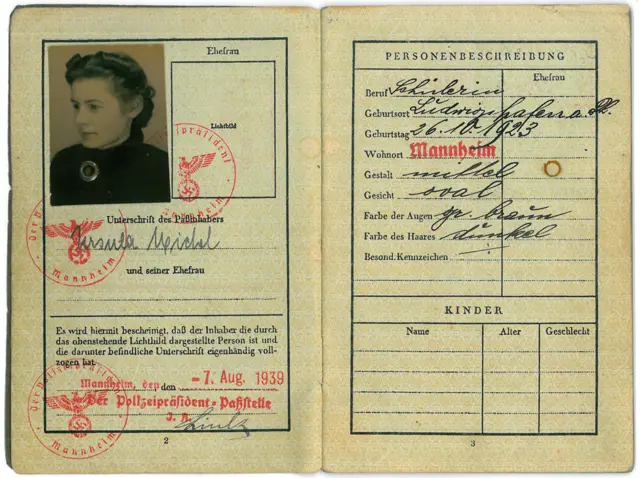 Ehefrau
Lichtbild
Der Polizeipräsident
Mannheim
Unterschrift des Paßinhabers
Ursula Michel
und seiner Ehefrau
Der Polizeipräsident
Mannheim
Es wird hiermit bescheinigt, daß der Inhaber die durch
das obenstehende Lichtbild dargestellte Person ist und
die darunter befindliche Unterschrift eigenhändig voll-
zogen hat.
Mannheim, den den -7. Aug. 1939
Der Polizeipräsident - Paßstelle
Der Polizeipräsident
Mannheim
2
PERSONENBESCHREIBUNG
Ehefrau
Beruf Schülerin
Geburtsort Ludwigshafen a. Rh.
Geburtstag 26.10.1923
Wohnort Mannheim
Gestalt mittel
Gesicht oval
Farbe der Augen gr. braun
Farbe des Haares dunkel
Besond. Kennzeichen
KINDER
Name Alter Geschlecht
3